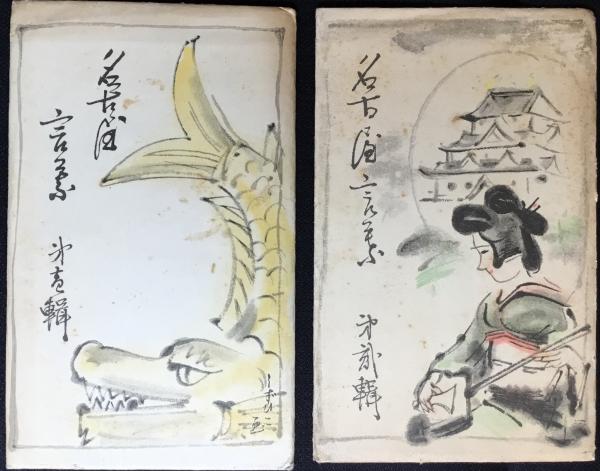 名古屋
言葉
第壱輯
名古屋言葉
第弐輯